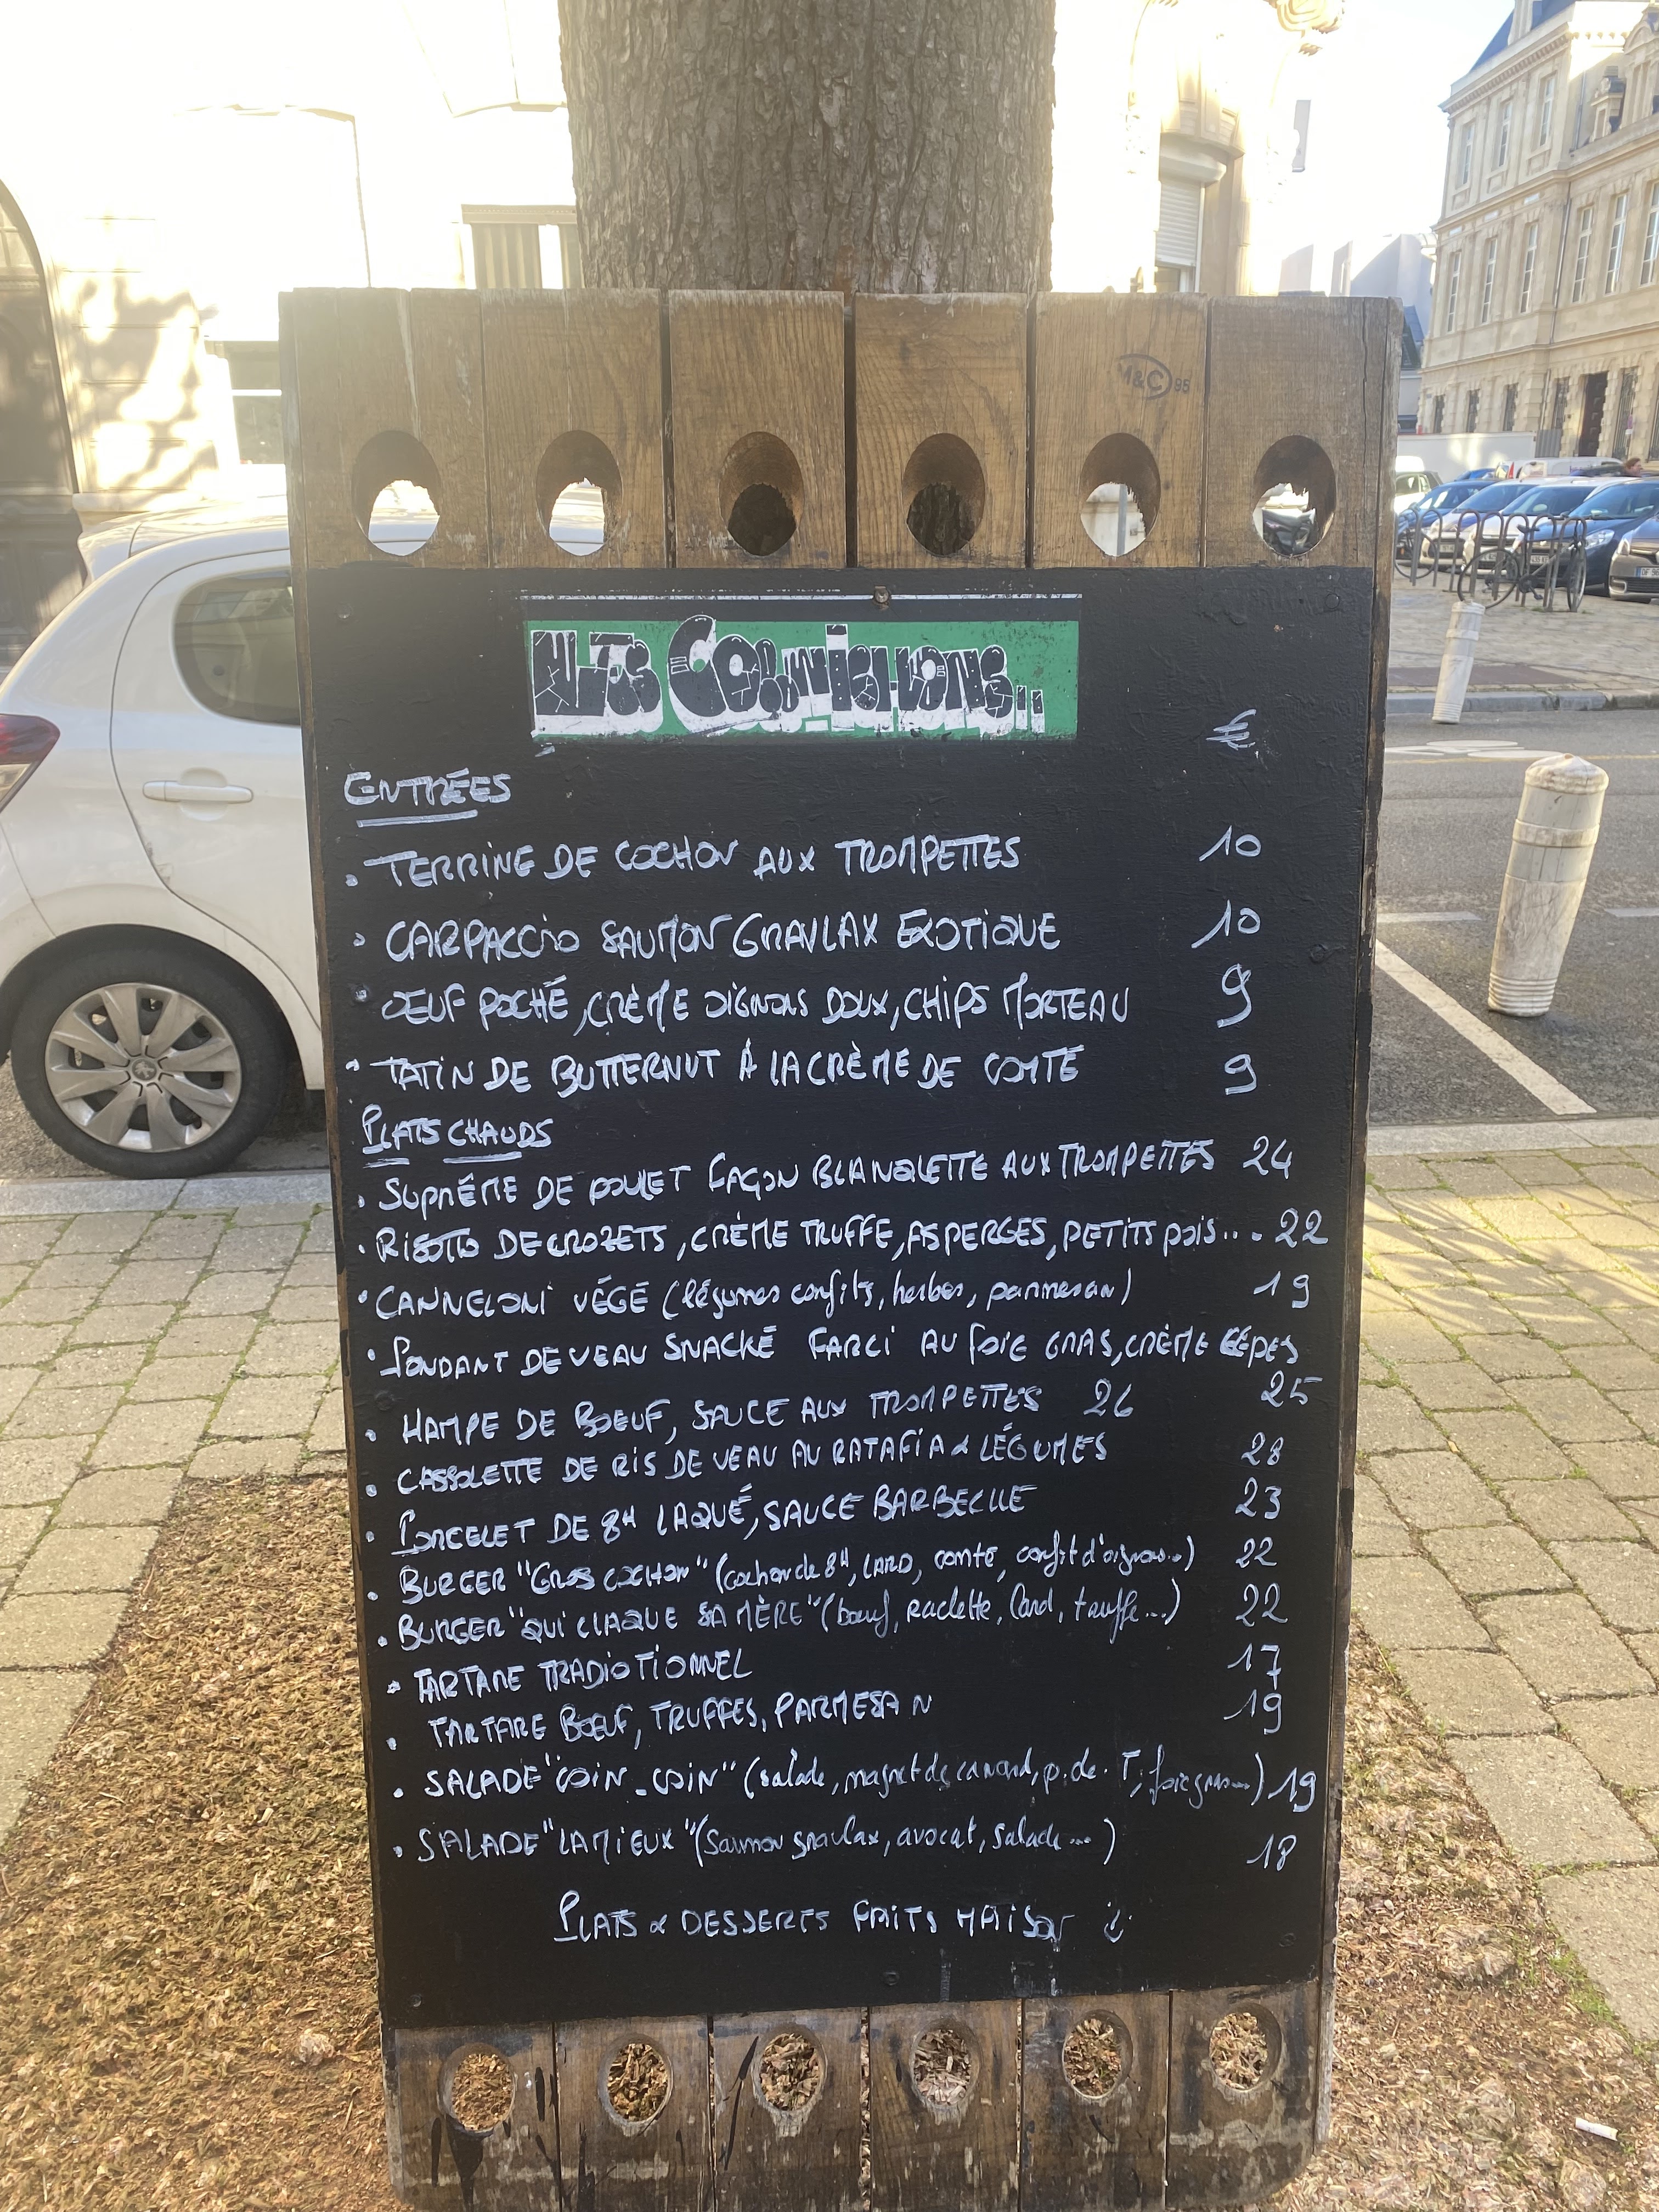 M&C 95
Les Cornichons...
€
ENTRÉES
. TERRINE DE COCHON AUX TROMPETTES 10
. CARPACCIO SAUMON GRAVLAX EXOTIQUE 10
. OEUF POCHÉ, CRÈME OIGNONS DOUX, CHIPS MORTEAU 9
. TATIN DE BUTTERNUT À LA CRÈME DE COMTÉ 9
PLATS CHAUDS
. SUPRÊME DE POULET FAÇON BLANQUETTE AUX TROMPETTES 24
. RISOTTO DE CROZETS, CRÈME TRUFFE, ASPERGES, PETITS POIS... 22
. CANNELONI VÉGÉ (légumes confits, herbes, parmesan) 19
. FONDANT DE VEAU SNACKÉ FARCI AU FOIE GRAS, CRÈME CÈPES
25
. HAMPE DE BOEUF, SAUCE AUX TROMPETTES 26
. CASSOLETTE DE RIS DE VEAU AU RATAFIA & LÉGUMES 28
. PORCELET DE 8H LAQUÉ, SAUCE BARBECUE 23
. BURGER "GROS COCHON" (cochon de 8H, LARD, comté, confit d'oignons...) 22
. BURGER "QUI CLAQUE SA MÈRE" (boeuf, raclette, lard, truffe...) 22
. TARTARE TRADIOTIONNEL 17
. TARTARE BOEUF, TRUFFES, PARMESAN 19
. SALADE "COIN-COIN" (salade, magret de canard, p. de. T, foie gras...) 19
. SALADE "LA MIEUX" (Saumon gravlax, avocat, salade...) 18
PLATS & DESSERTS FAITS MAISON